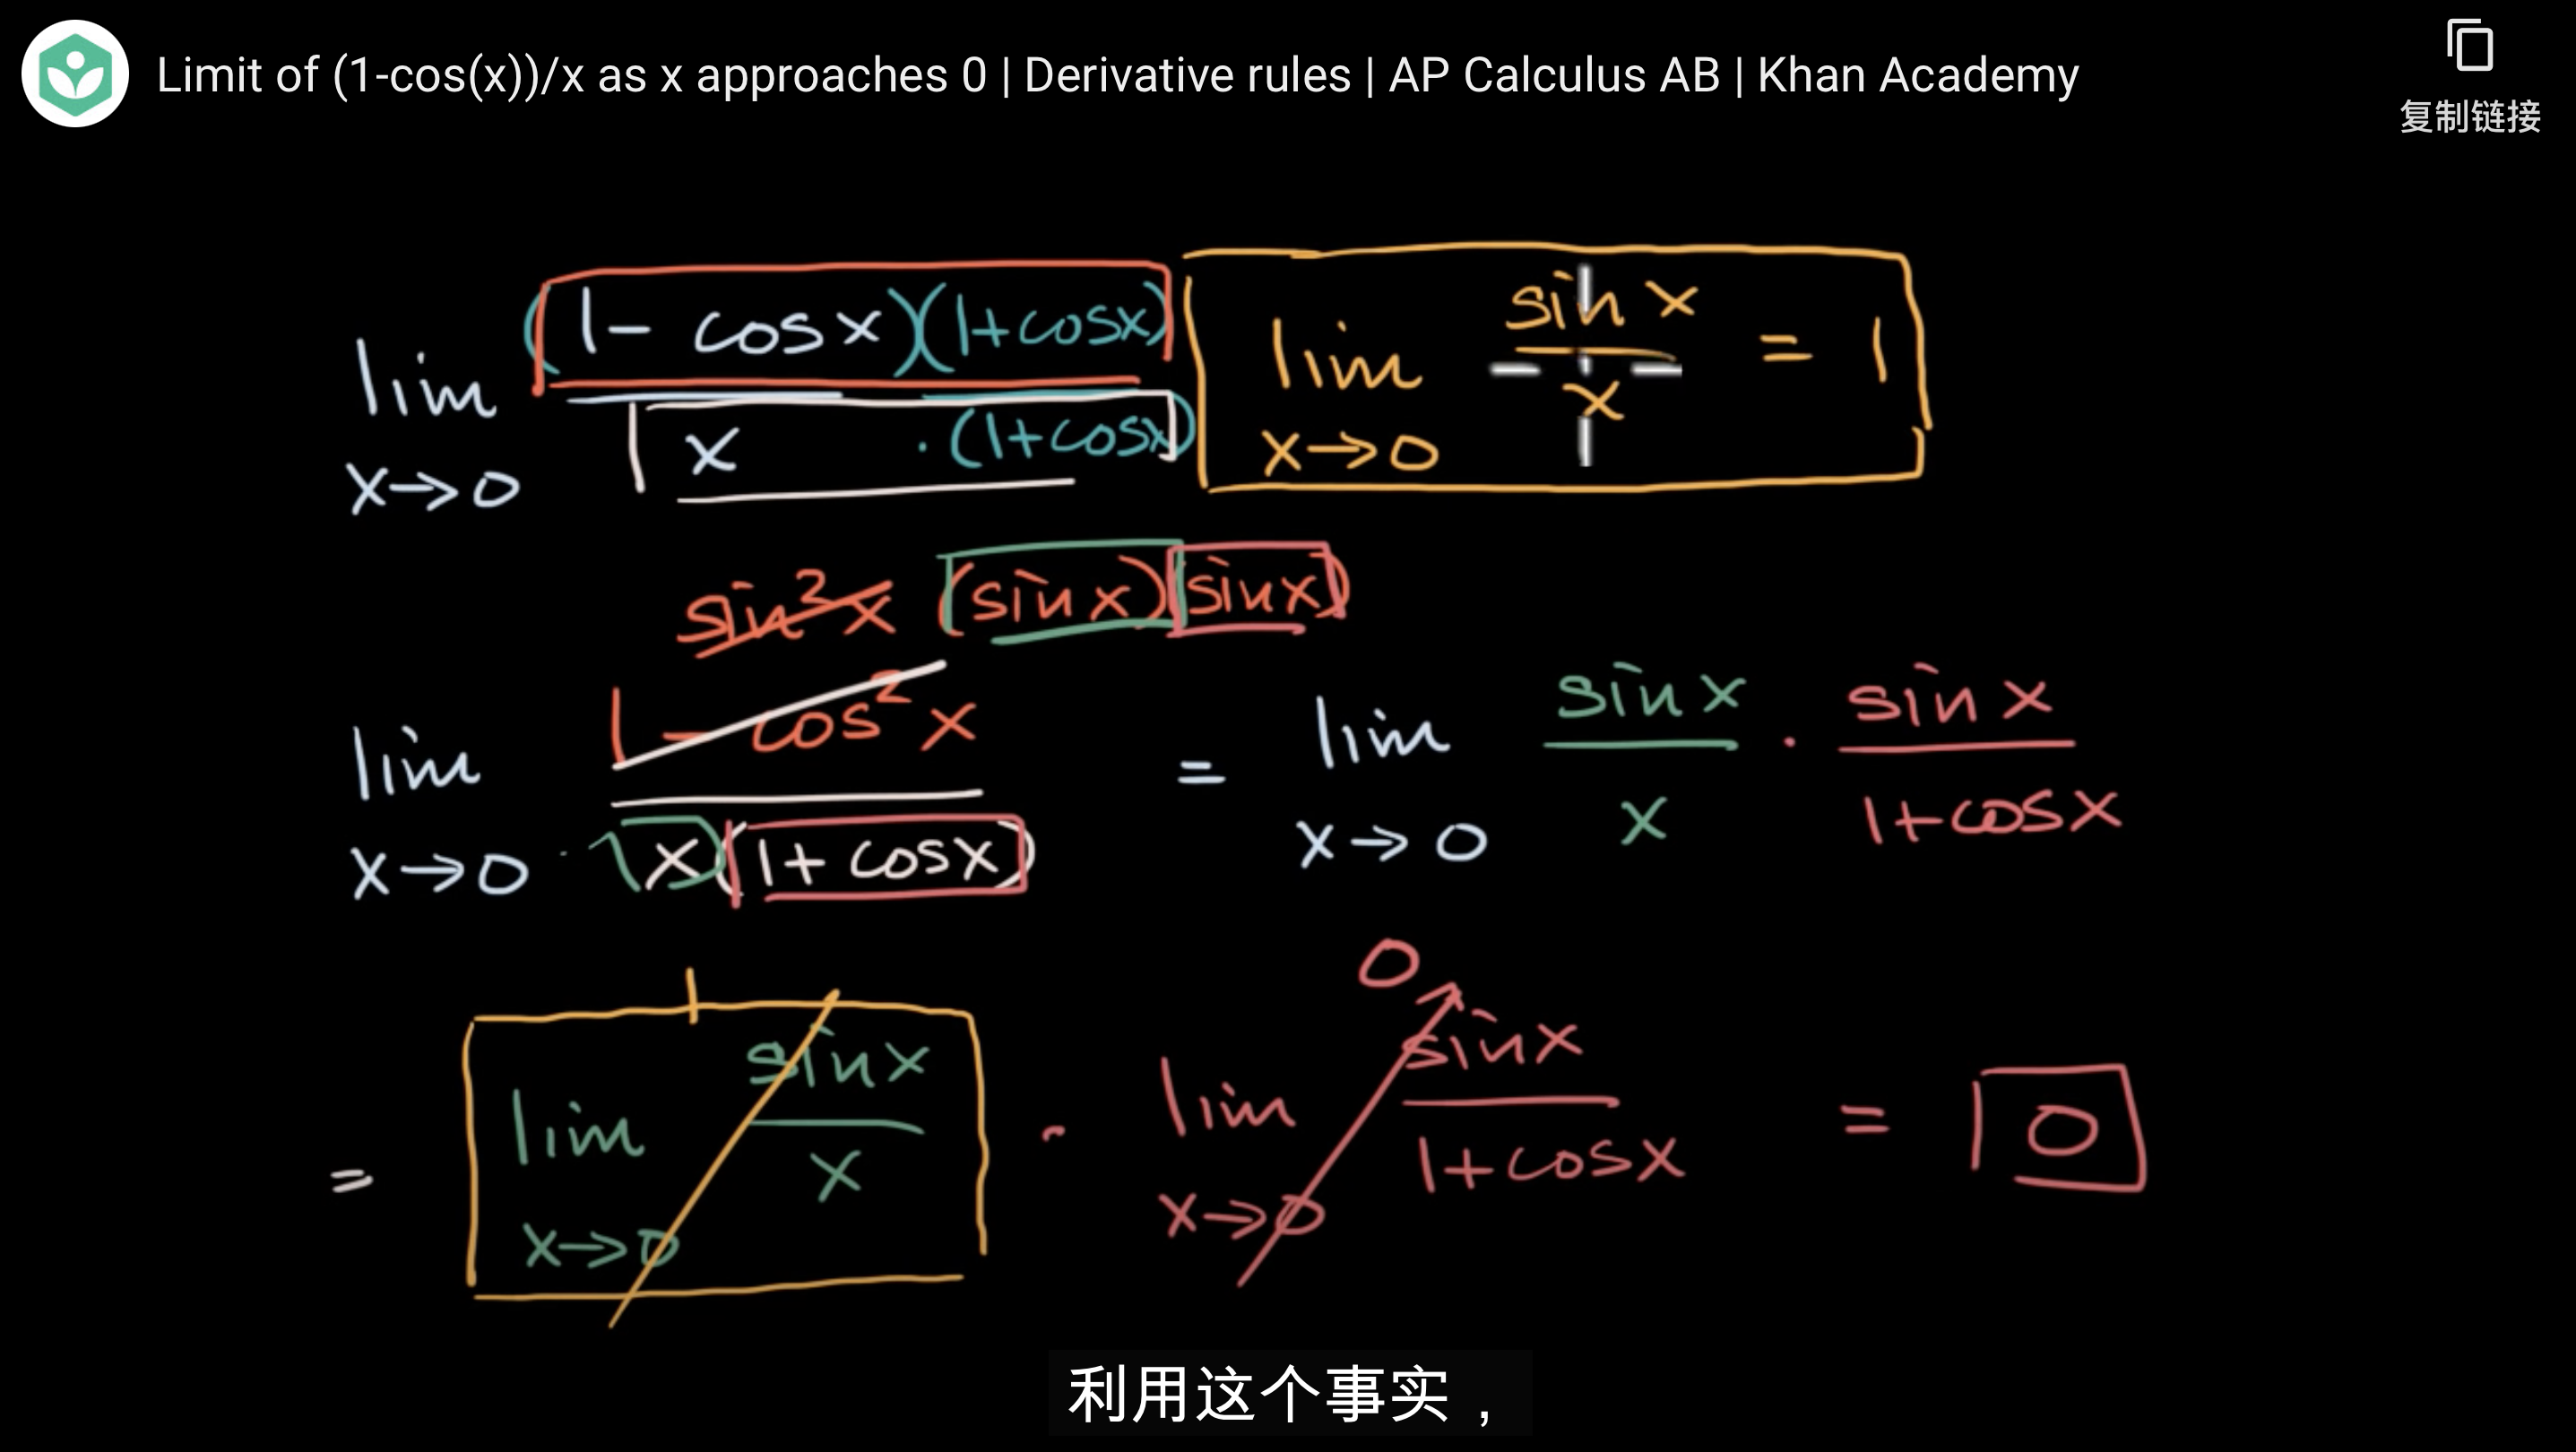 Limit of (1-cos(x))/x as x approaches 0 | Derivative rules | AP Calculus AB | Khan Academy
复制链接
lim x→0 (1 - cos x)(1+cosx) / x · (1+cosx)
lim x→0 sin x / x = 1
sin²x (sin x)(sin x)
lim x→0 1 - cos² x / x(1 + cos x) = lim x→0 sin x / x · sin x / 1+cosx
1 0
= lim x→0 sin x / x · lim x→0 sin x / 1+cosx = 0
利用这个事实，